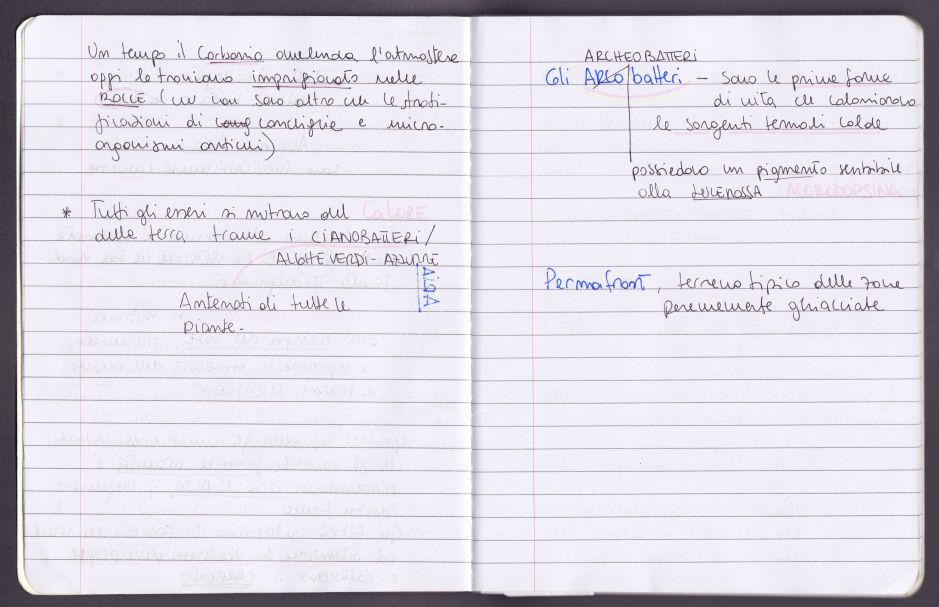 Un tempo il Carbonio avvelenava l'atmosfera
oggi lo troviamo imprigionato nelle
ROCCE (che non sono altro che le strati-
ficazioni di conchiglie e micro-
organismi antichi)
* Tutti gli esseri si nutrono del CALORE
della terra tramite i CIANOBATTERI/
ALGHE VERDI-AZZURRE
AigA
Antenati di tutte le
piante.
ARCHEOBATTERI
Gli ARCObatteri - sono le prime forme
di vita che colonizzarono
le sorgenti termali calde
possiedono un pigmento sensibile
alla LUCE ROSSA ALORODOPSINA
Permafrost, terreno tipico delle zone
perennemente ghiacciate